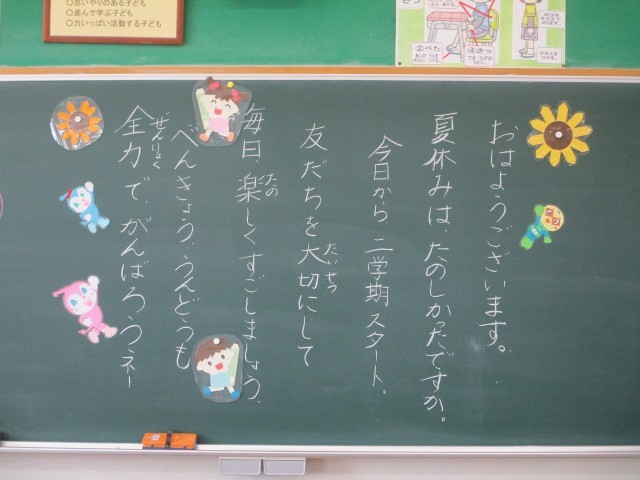 おはようございます。
夏休みは、たのしかったですか。
今日から 二学期スタート。
友だちを大切にして
たいせつ
毎日、楽しくすごしましょう。
たの
べんきょう、うんどうも
全力で、がんばろうネー
ぜんりょく
○思いやりのある子ども
○進んで学ぶ子ども
○力いっぱい活動する子ども
②ぺた
④さっ